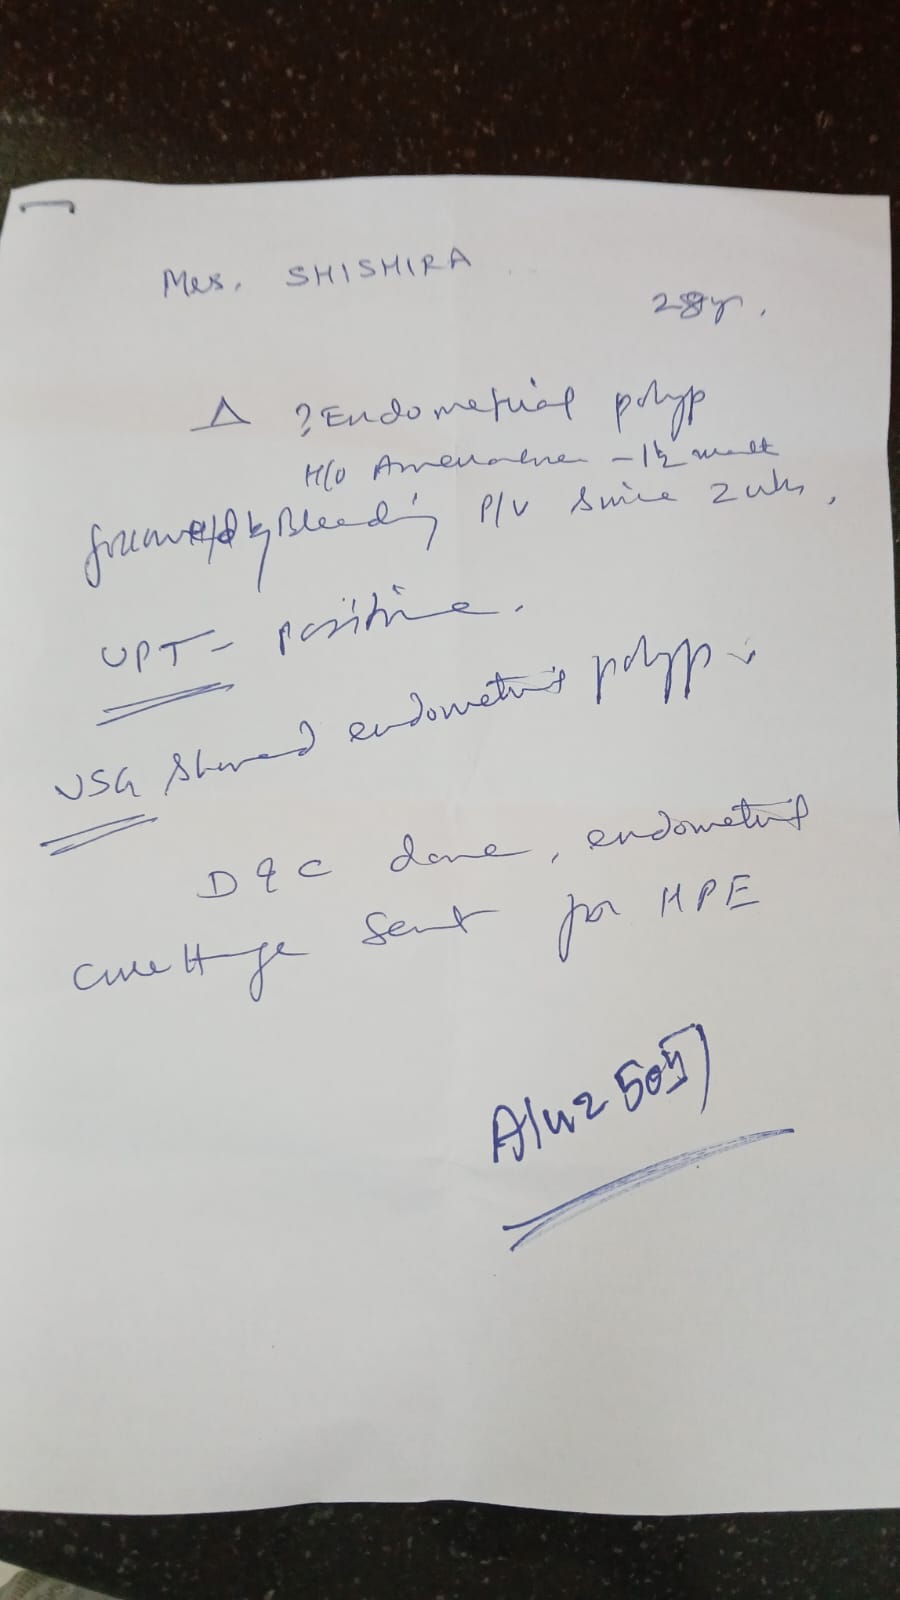 Mrs. SHISHIRA
28yr.
Δ ?Endometrial polyp
H/o Amenorrhea - 1½ month
followed by Bleeding P/V since 2 wks.
UPT - positive.
USG showed endometrial polyp.
D & C done, endometrial
curettage sent for HPE